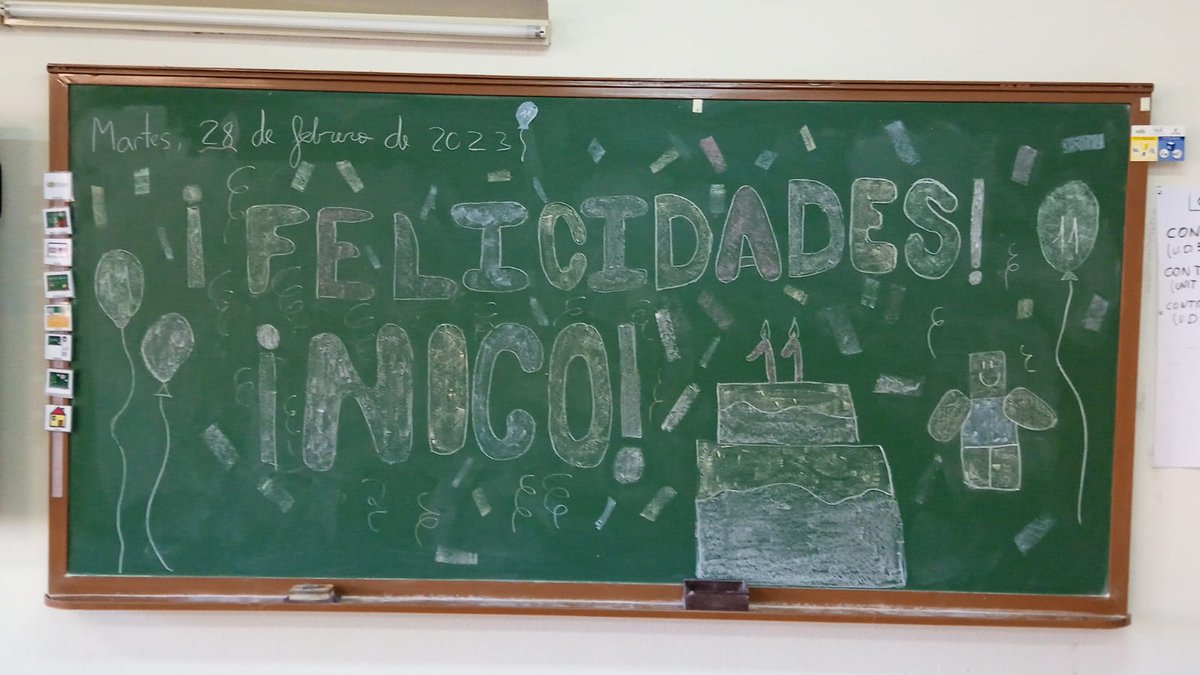 Martes, 28 de febrero de 2023
11
¡FELICIDADES!
11
¡NICO!
11
CON
(U.D.
CONT
(UNIT
CONT
(U.D